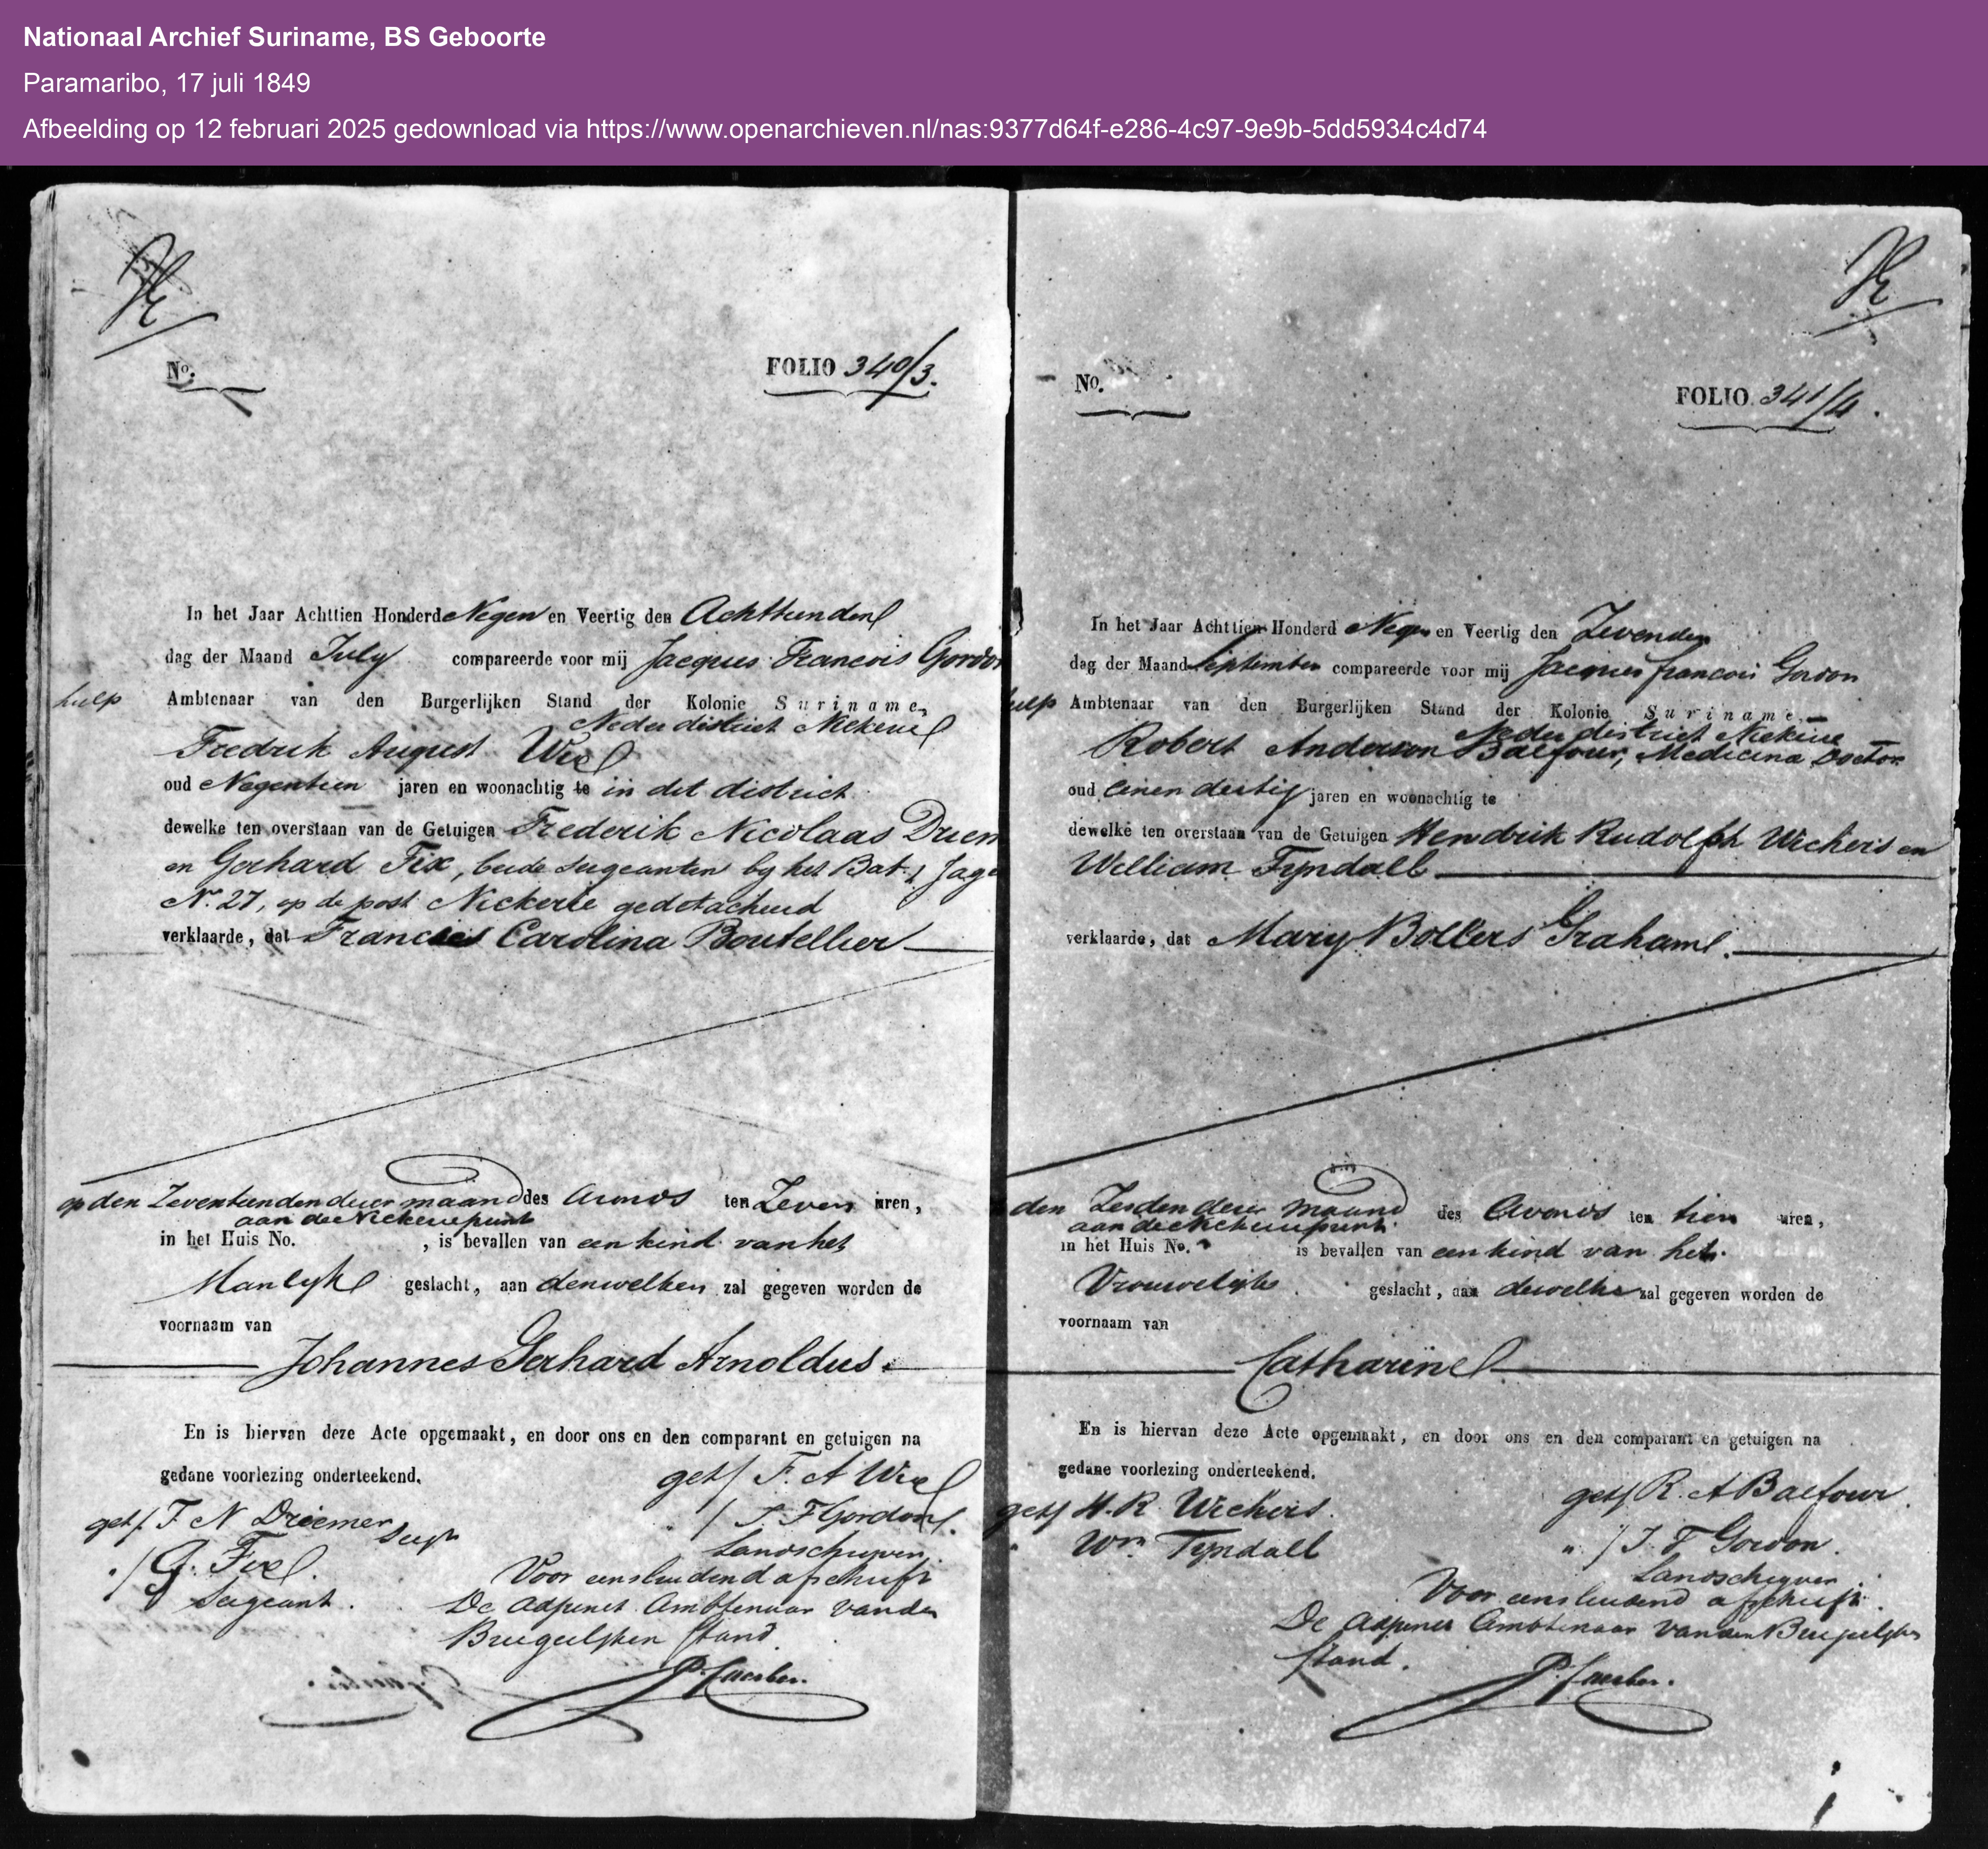 Nationaal Archief Suriname, BS Geboorte
Paramaribo, 17 juli 1849
Afbeelding op 12 februari 2025 gedownload via https://www.openarchieven.nl/nas:9377d64f-e286-4c97-9e9b-5dd5934c4d74
No.
FOLIO 340/3.
In het Jaar Achttien Honderd Negen en Veertig den Achttienden
dag der Maand July compareerde voor mij Jacques Francois Gordon
hulp Ambtenaar van den Burgerlijken Stand der Kolonie Suriname,
Neder district Nickerie
Fredrik August Weel
oud Negentien jaren en woonachtig te in dit district
dewelke ten overstaan van de Getuigen Frederik Nicolaas Driem
en Gerhard Fix, beide sergeanten by het Bat. Jag
No. 27, op de post Nickerie gedetacheerd
verklaarde, dat Francies Carolina Boutellier
op den Zeventienden dezer maand des Avonds ten Zeven uren,
aan de Nickeriepunt
in het Huis No. , is bevallen van een kind van het
Manlyke geslacht, aan denwelken zal gegeven worden de
voornaam van
Johannes Gerhard Arnoldus.
En is hiervan deze Acte opgemaakt, en door ons en den comparant en getuigen na
gedane voorlezing onderteekend.
get/ F. A Weel
get/ F N Driemer Sergt
/ J F Gordon.
Landschryver.
/ G. Fix.
Sergeant.
Voor eensluidend afschrift
De Adjunct Ambtenaar van den
Burgerlyken Stand
No.
FOLIO 341/4.
In het Jaar Achttien Honderd Negen en Veertig den Zevenden
dag der Maand September compareerde voor mij Jacques francois Gordon
hulp Ambtenaar van den Burgerlijken Stand der Kolonie Suriname,
Neder district Nickerie
Robert Anderson Balfour, Medicina Doctor
oud eenen dertig jaren en woonachtig te
dewelke ten overstaan van de Getuigen Hendrik Rudolph Wichers en
William Tyndall
verklaarde, dat Mary Bollers Graham.
den Zesden dezer maand des Avonds ten tien uren,
aan de Nickeriepunt
in het Huis No. is bevallen van een kind van het
Vrouwelijke geslacht, aan dewelke zal gegeven worden de
voornaam van
Catharine
En is hiervan deze Acte opgemaakt, en door ons en den comparant en getuigen na
gedane voorlezing onderteekend.
get/ R. A Balfour.
get/ H. R Wichers.
" / J. F Gordon.
" Wm Tyndall
Landschryver
Voor eensluidend afschrift.
De Adjunct Ambtenaar van den Burgerlyken
Stand.